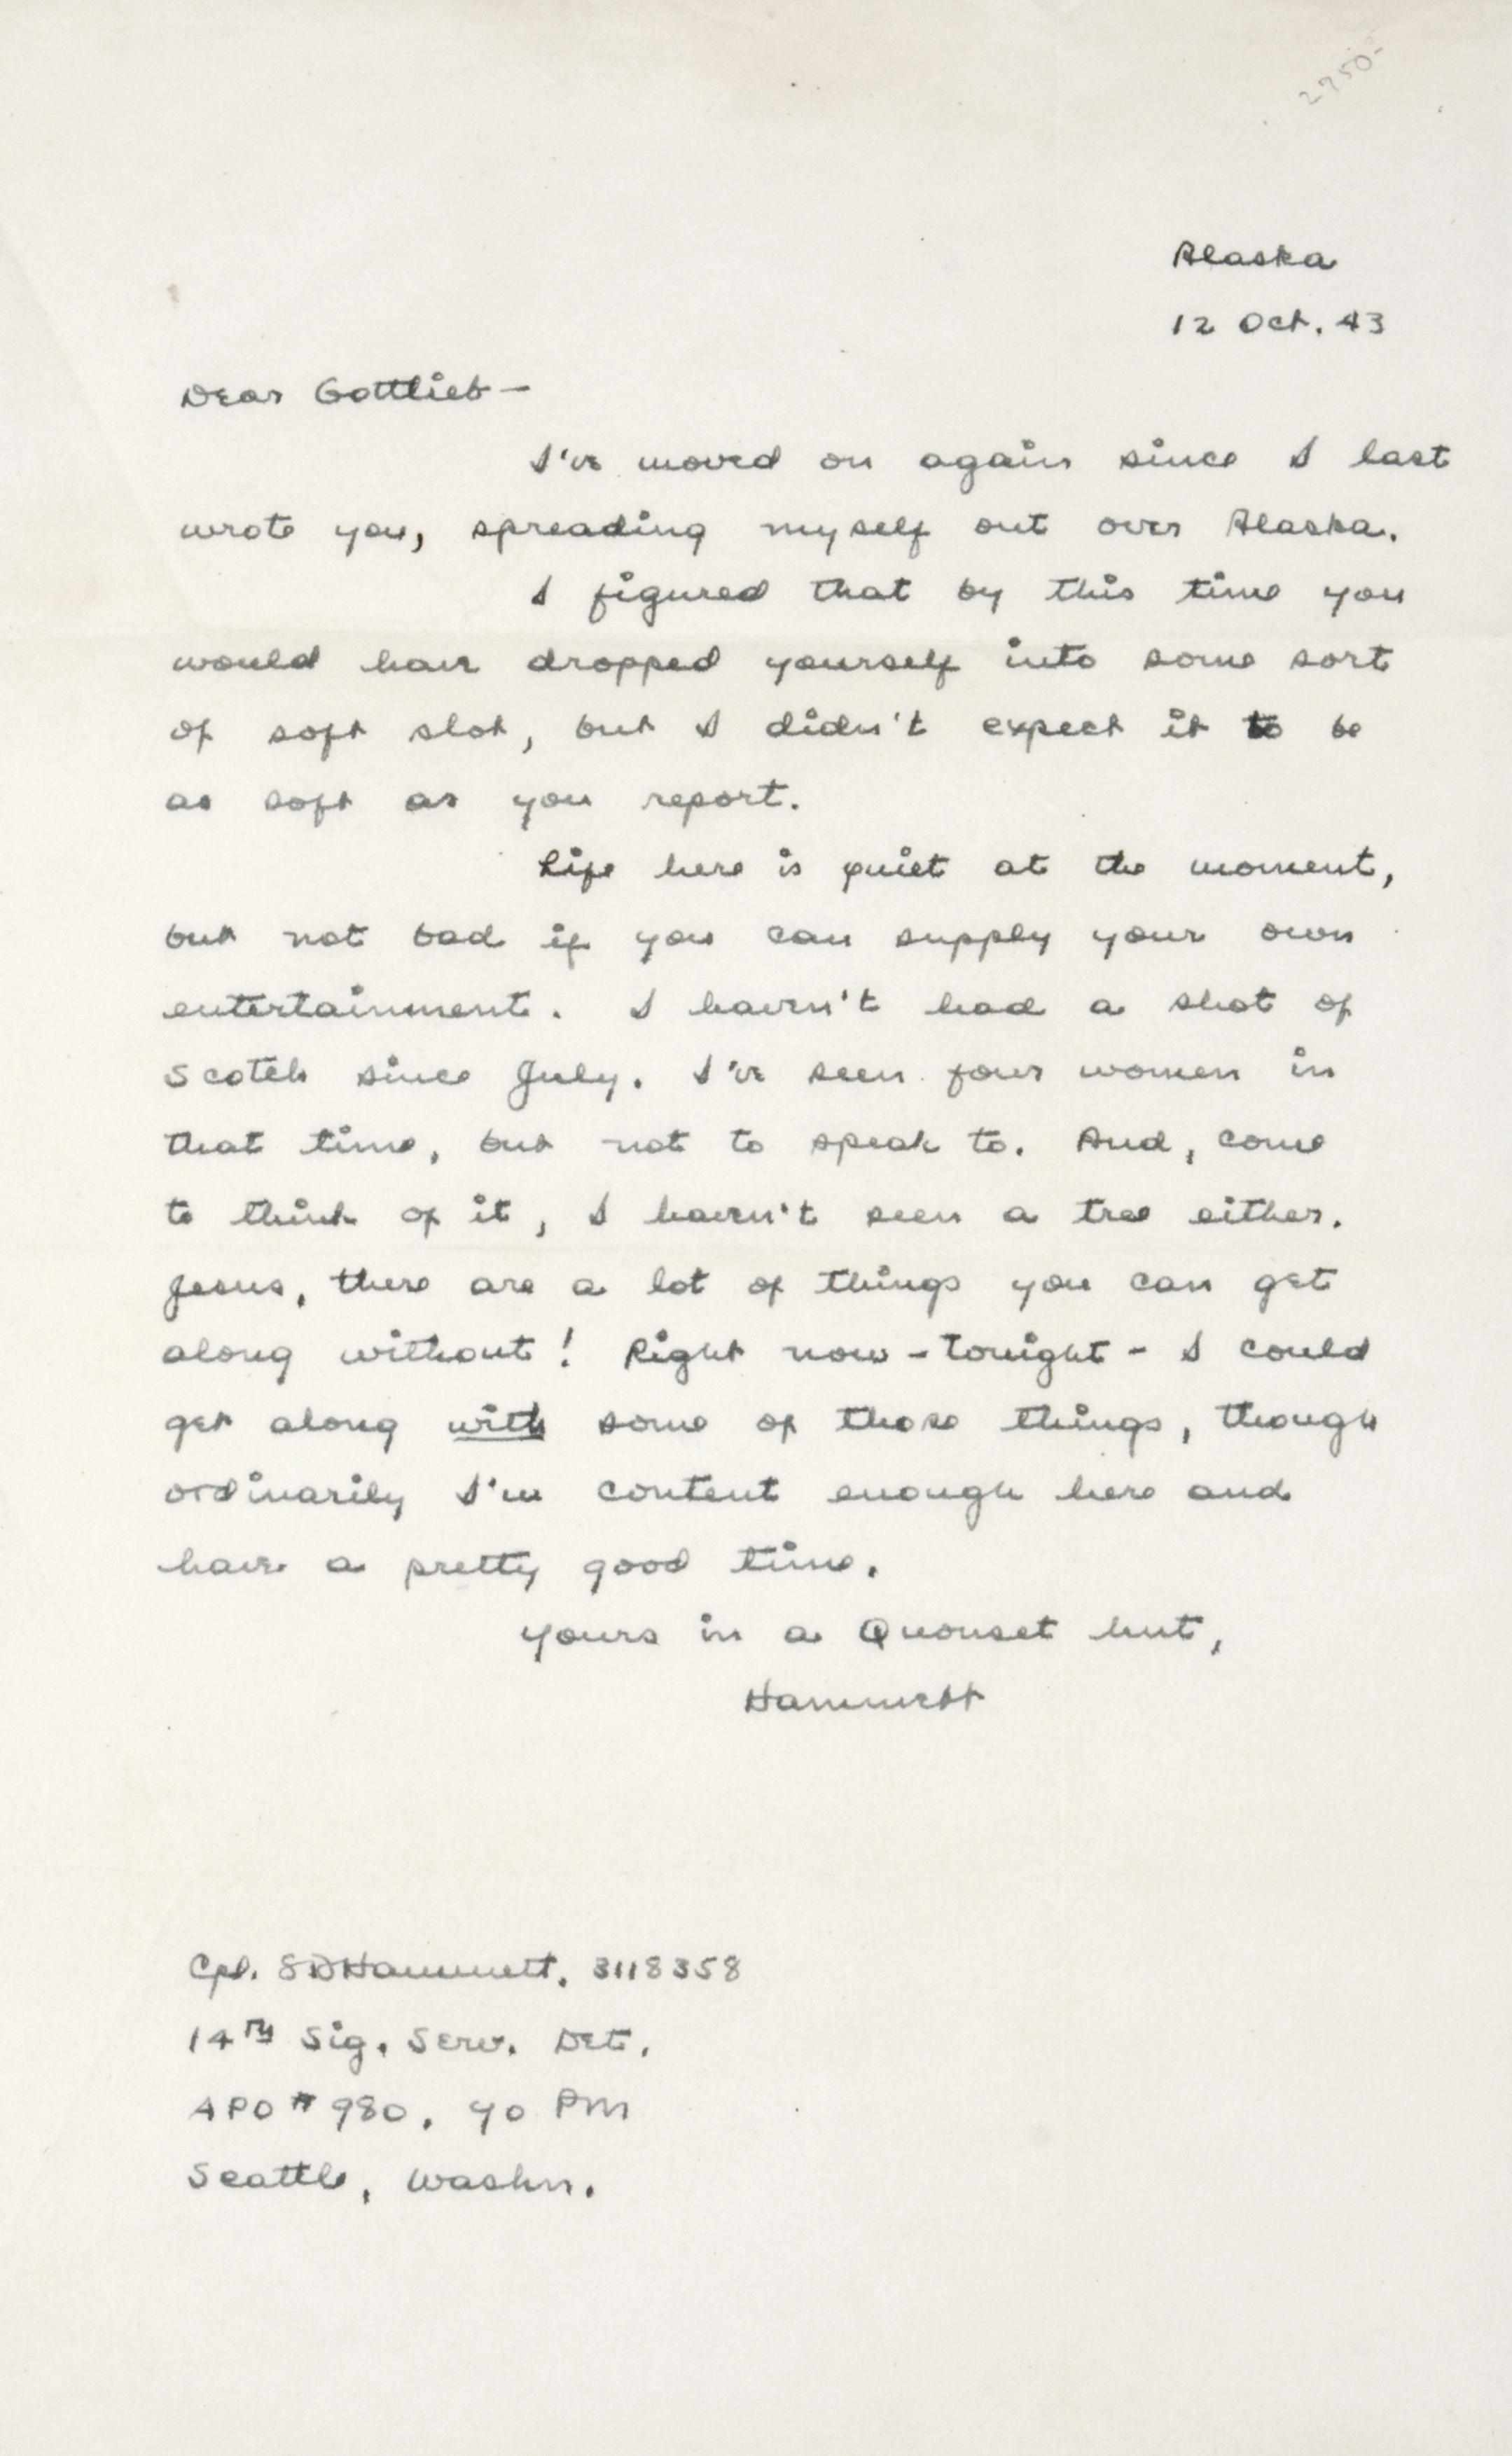 2750-
Alaska
12 Oct. 43
Dear Gottlieb-
I've moved on again since I last
wrote you, spreading myself out over Alaska.
I figured that by this time you
would have dropped yourself into some sort
of soft slot, but I didn't expect it to be
as soft as you report.
Life here is quiet at the moment,
but not bad if you can supply your own
entertainment. I haven't had a shot of
Scotch since July. I've seen four women in
that time, but not to speak to. And, come
to think of it, I haven't seen a tree either.
Jesus, there are a lot of things you can get
along without! Right now - tonight - I could
get along with some of those things, though
ordinarily I'm content enough here and
have a pretty good time.
Yours in a Quonset hut,
Hammett
Cpl. SDHammett. 3118358
14TH Sig. Serv. Det.
APO #980, c/o PM
Seattle, Washn.